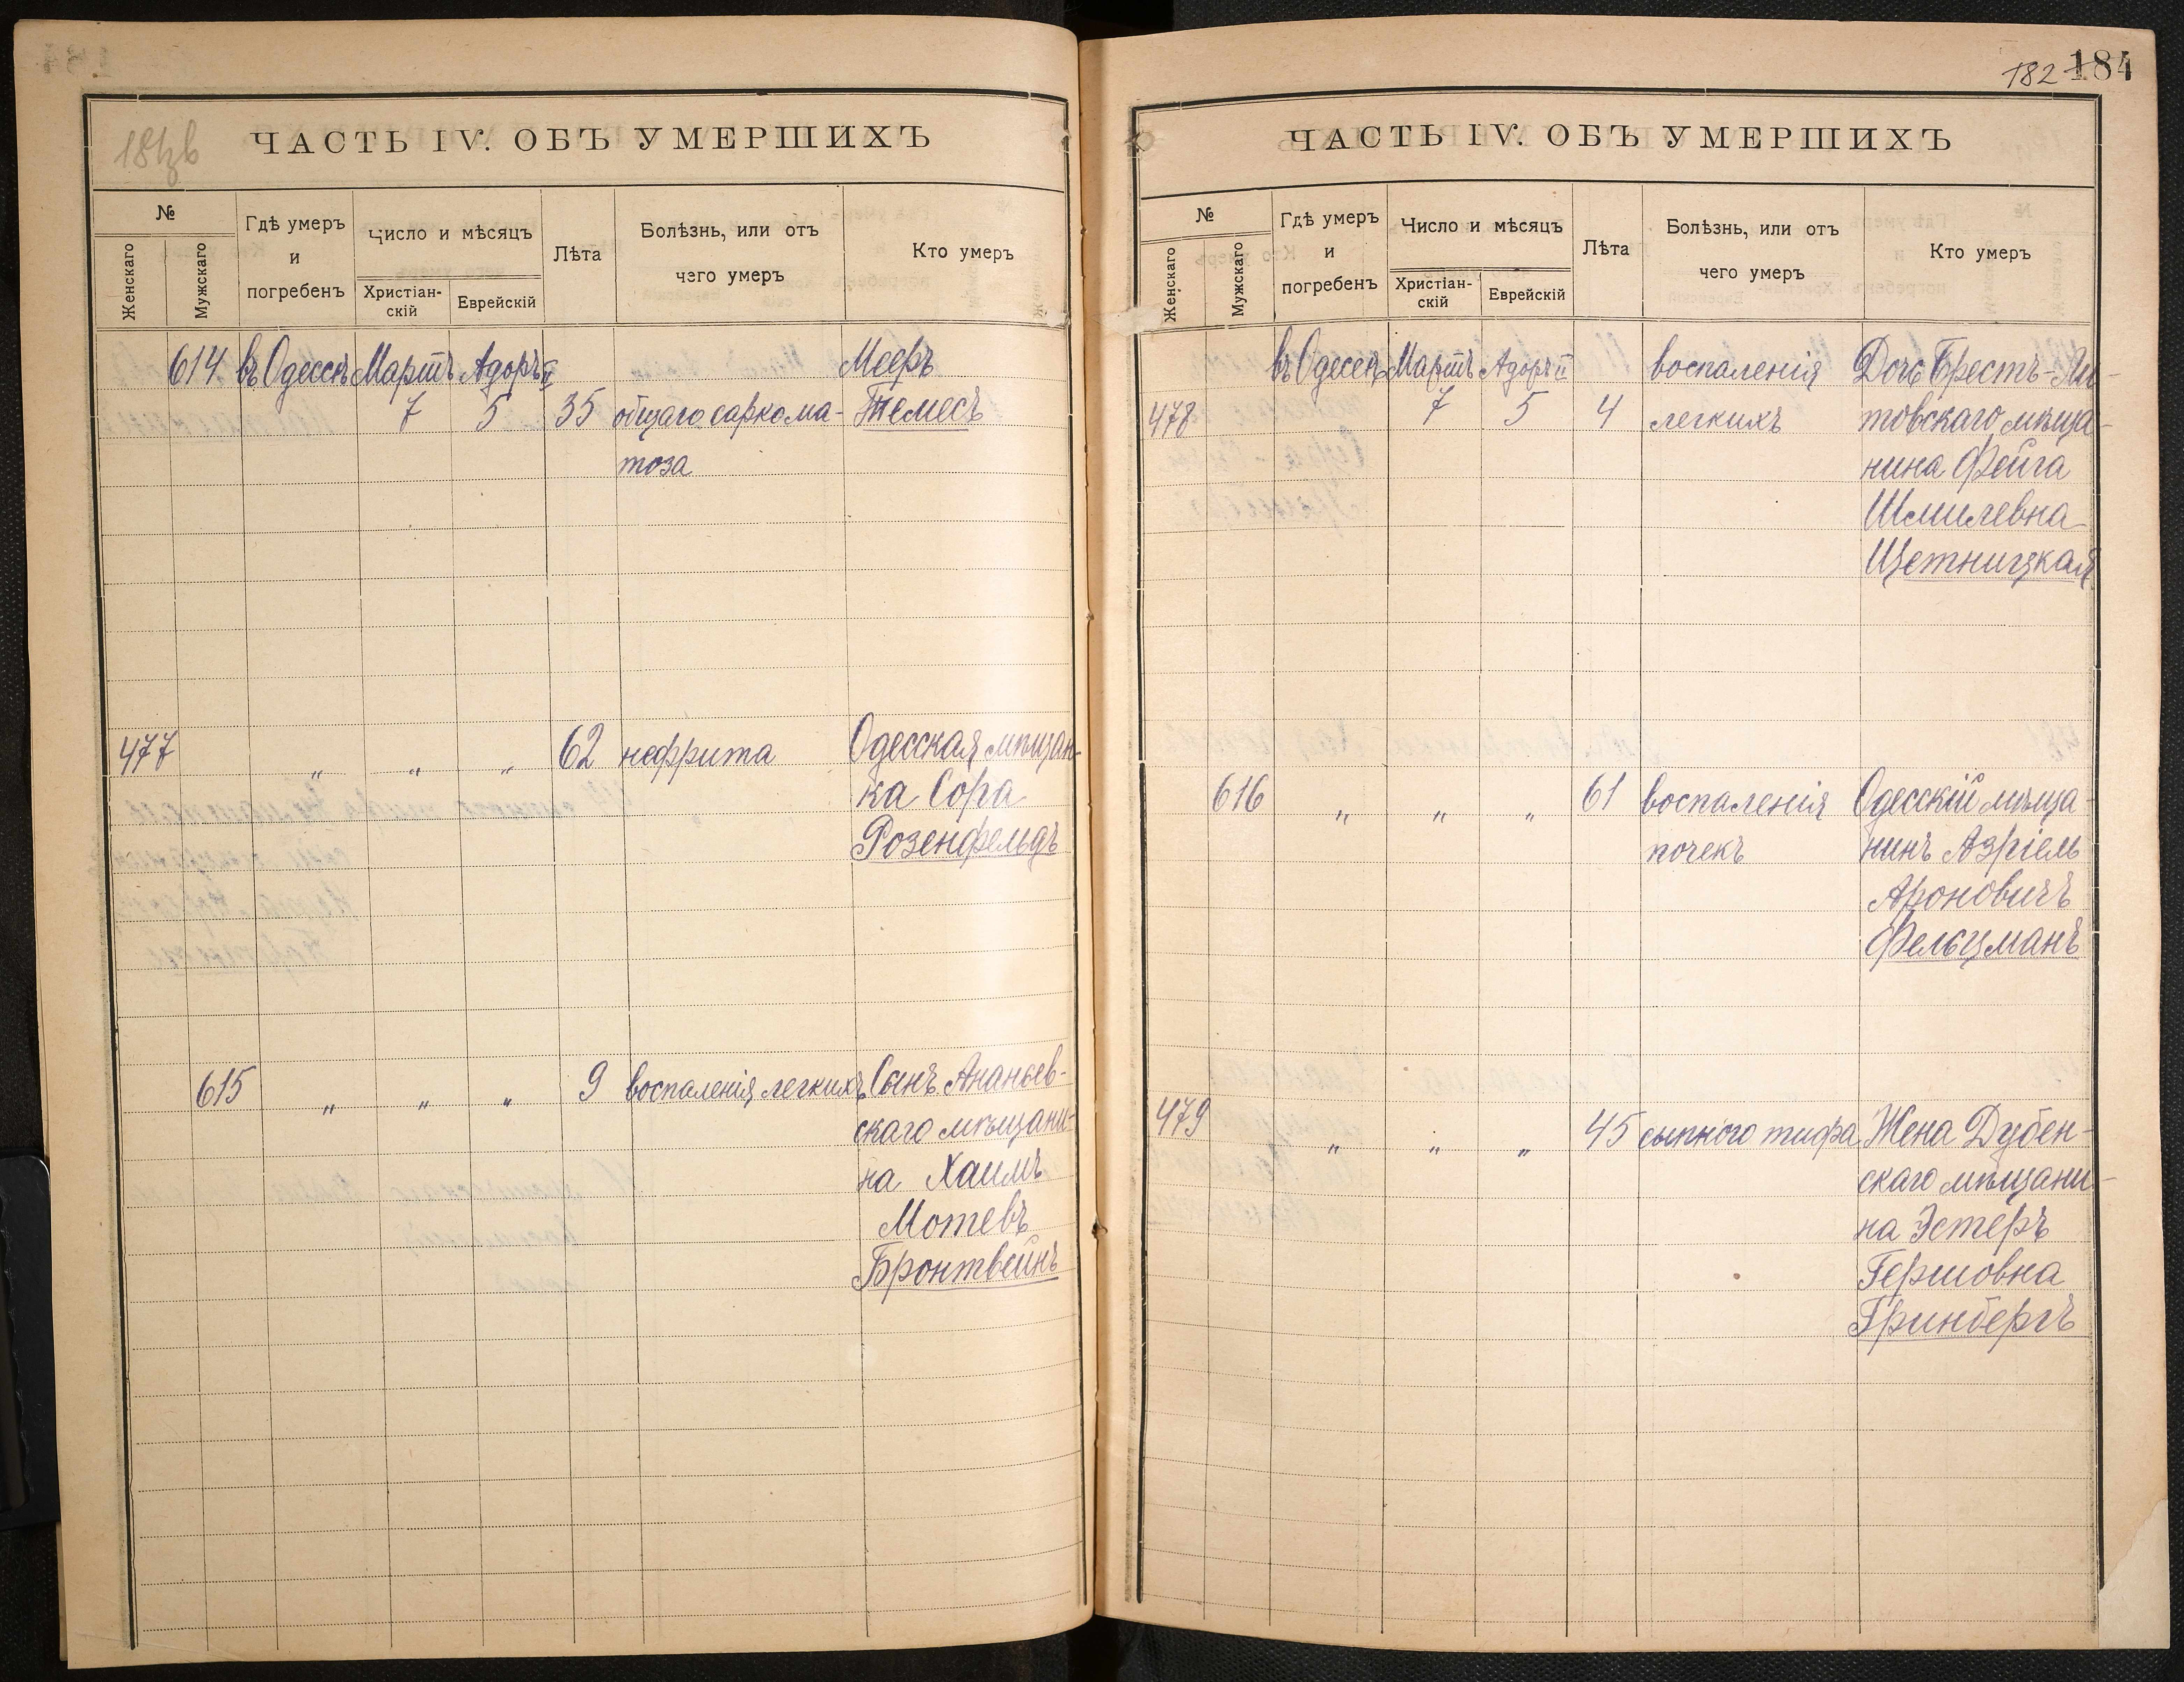 ЧАСТЬ IV. ОБЪ УМЕРШИХЪ
№
Женскаго
Мужскаго
Гдѣ умеръ
и
погребенъ
Число и мѣсяцъ
Христіан-
скій
Еврейскій
Лѣта
Болѣзнь, или отъ
чего умеръ
Кто умеръ
614 въ Одессѣ Мартъ Адоръ II Мееръ
7 5 35 общаго саркома- Темесъ
тоза
477 " " " 62 нефрита Одесская мѣщан-
ка Сора
Розенфельдъ
615 " " " 9 воспаленія легкихъ Сынъ Ананьев-
скаго мѣщани-
на Хаимъ
Мотевъ
Бронтвейнъ
182 184
ЧАСТЬ IV. ОБЪ УМЕРШИХЪ
№
Женскаго
Мужскаго
Гдѣ умеръ
и
погребенъ
Число и мѣсяцъ
Христіан-
скій
Еврейскій
Лѣта
Болѣзнь, или отъ
чего умеръ
Кто умеръ
въ Одессѣ Мартъ Адоръ II воспаленія Дочь Брестъ-Ли-
478 7 5 4 легкихъ товскаго мѣща-
нина Фейга
Шмилевна
Щетницкая
616 " " " 61 воспаленія Одесскій мѣща-
почекъ нинъ Азріель
Ароновичъ
Фельцманъ
479 " " " 45 сыпного тифа Жена Дубен-
скаго мѣщани-
на Эстеръ
Гершовна
Гринбергъ